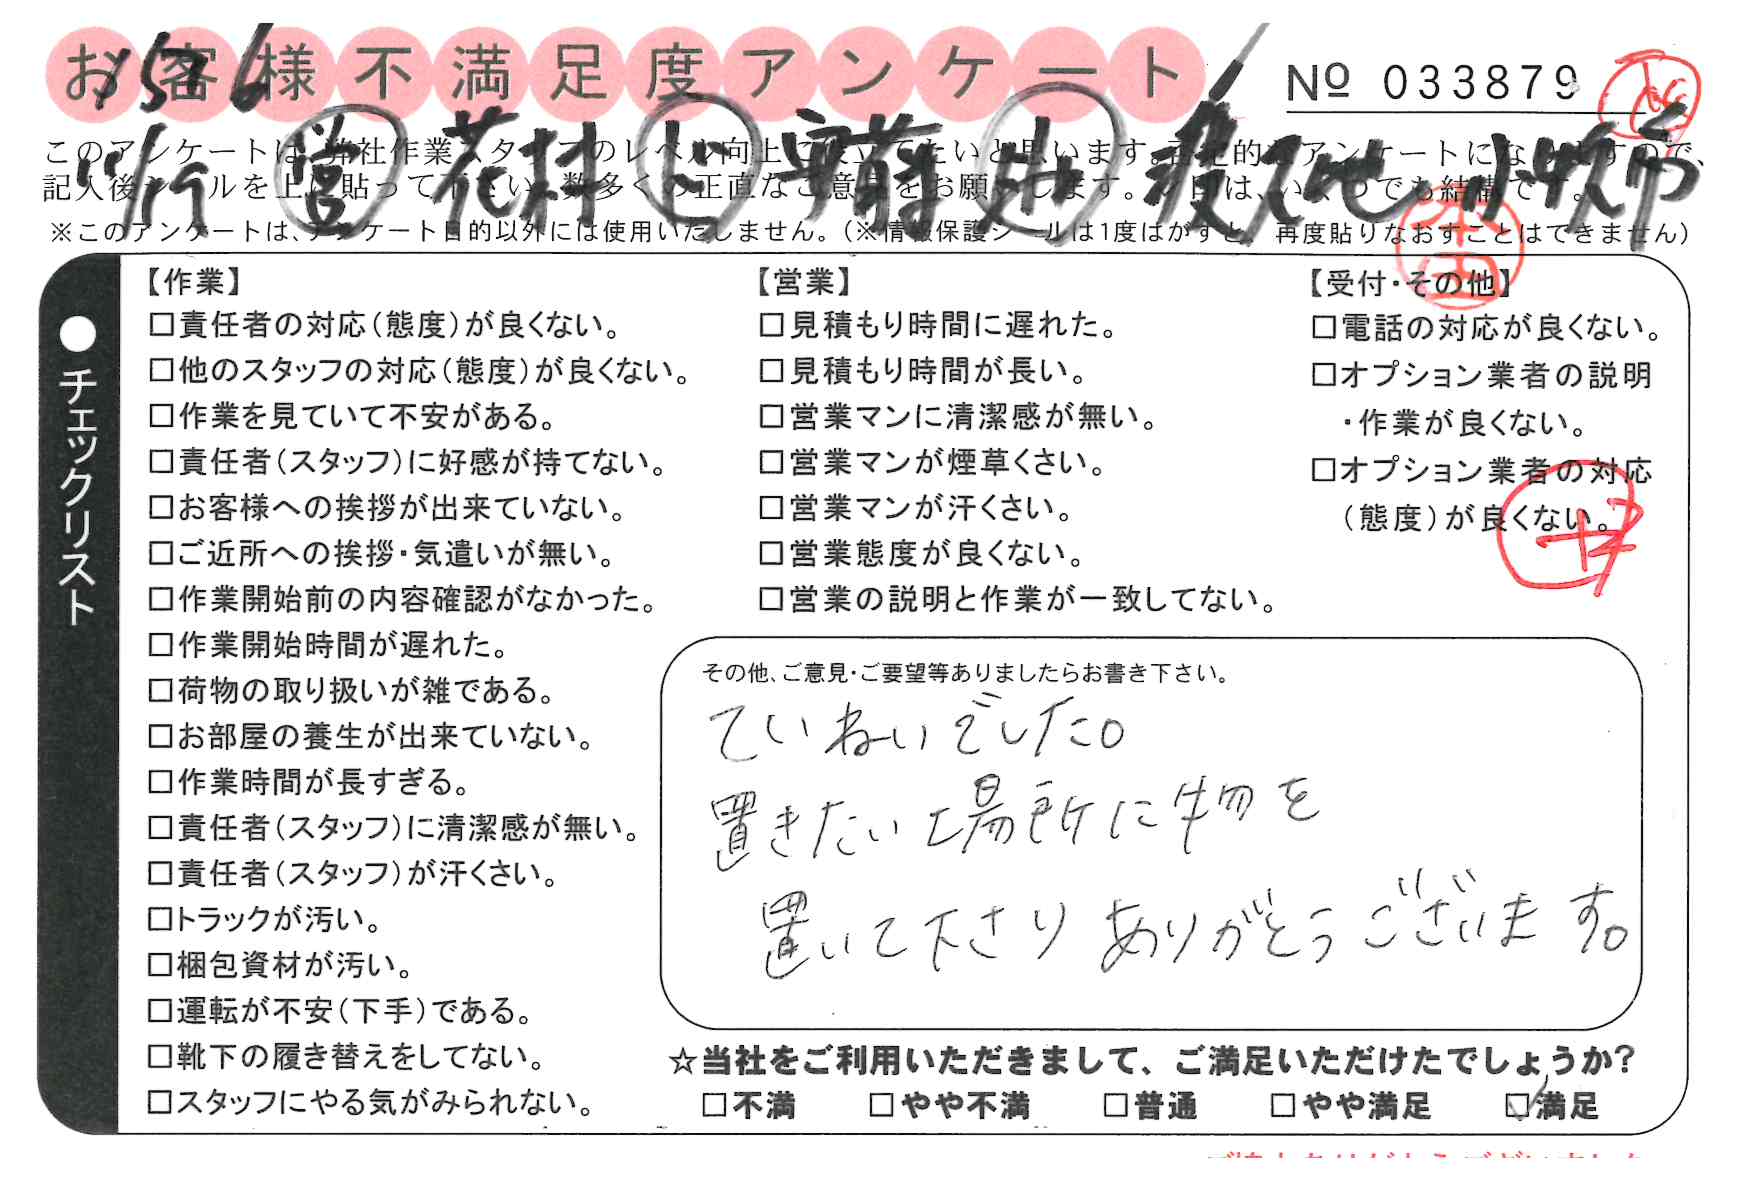 お客様不満足度アンケート
Nº 033879
このアンケートは、弊社作業スタッフのレベル向上に役立てたいと思います。否定的なアンケートになりますので、
記入後シールを上に貼って下さい。数多くの正直なご意見をお願いします。レ印は、いくつでも結構です。
※このアンケートは、アンケート目的以外には使用いたしません。(※情報保護シールは1度はがすと、再度貼りなおすことはできません)
1576
営 花村
●チェックリスト
【作業】
□責任者の対応(態度)が良くない。
□他のスタッフの対応(態度)が良くない。
□作業を見ていて不安がある。
□責任者(スタッフ)に好感が持てない。
□お客様への挨拶が出来ていない。
□ご近所への挨拶・気遣いが無い。
□作業開始前の内容確認がなかった。
□作業開始時間が遅れた。
□荷物の取り扱いが雑である。
□お部屋の養生が出来ていない。
□作業時間が長すぎる。
□責任者(スタッフ)に清潔感が無い。
□責任者(スタッフ)が汗くさい。
□トラックが汚い。
□梱包資材が汚い。
□運転が不安(下手)である。
□靴下の履き替えをしてない。
□スタッフにやる気がみられない。
【営業】
□見積もり時間に遅れた。
□見積もり時間が長い。
□営業マンに清潔感が無い。
□営業マンが煙草くさい。
□営業マンが汗くさい。
□営業態度が良くない。
□営業の説明と作業が一致してない。
【受付・その他】
□電話の対応が良くない。
□オプション業者の説明
・作業が良くない。
□オプション業者の対応
(態度)が良くない。
その他、ご意見・ご要望等ありましたらお書き下さい。
ていねいでした。
置きたい場所に物を
置いて下さり ありがとうございます。
☆当社をご利用いただきまして、ご満足いただけたでしょうか?
□不満 □やや不満 □普通 □やや満足 ☑満足